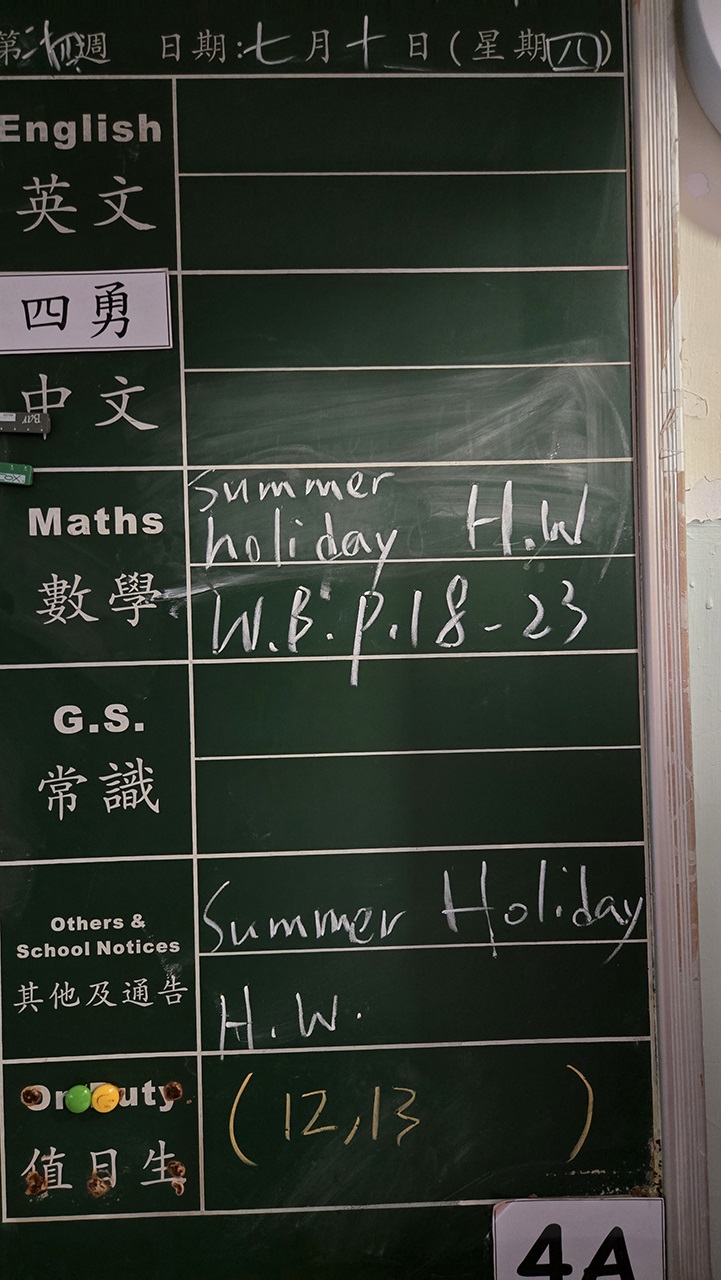 週 日期:七月十日(星期)
English
英文
四勇
中文
Maths
數學
summer
holiday H.W
W.B.P.18-23
G.S.
常識
Others &
School Notices
其他及通告
Summer Holiday
H.W.
On Duty
值日生
(12,13 )
4A